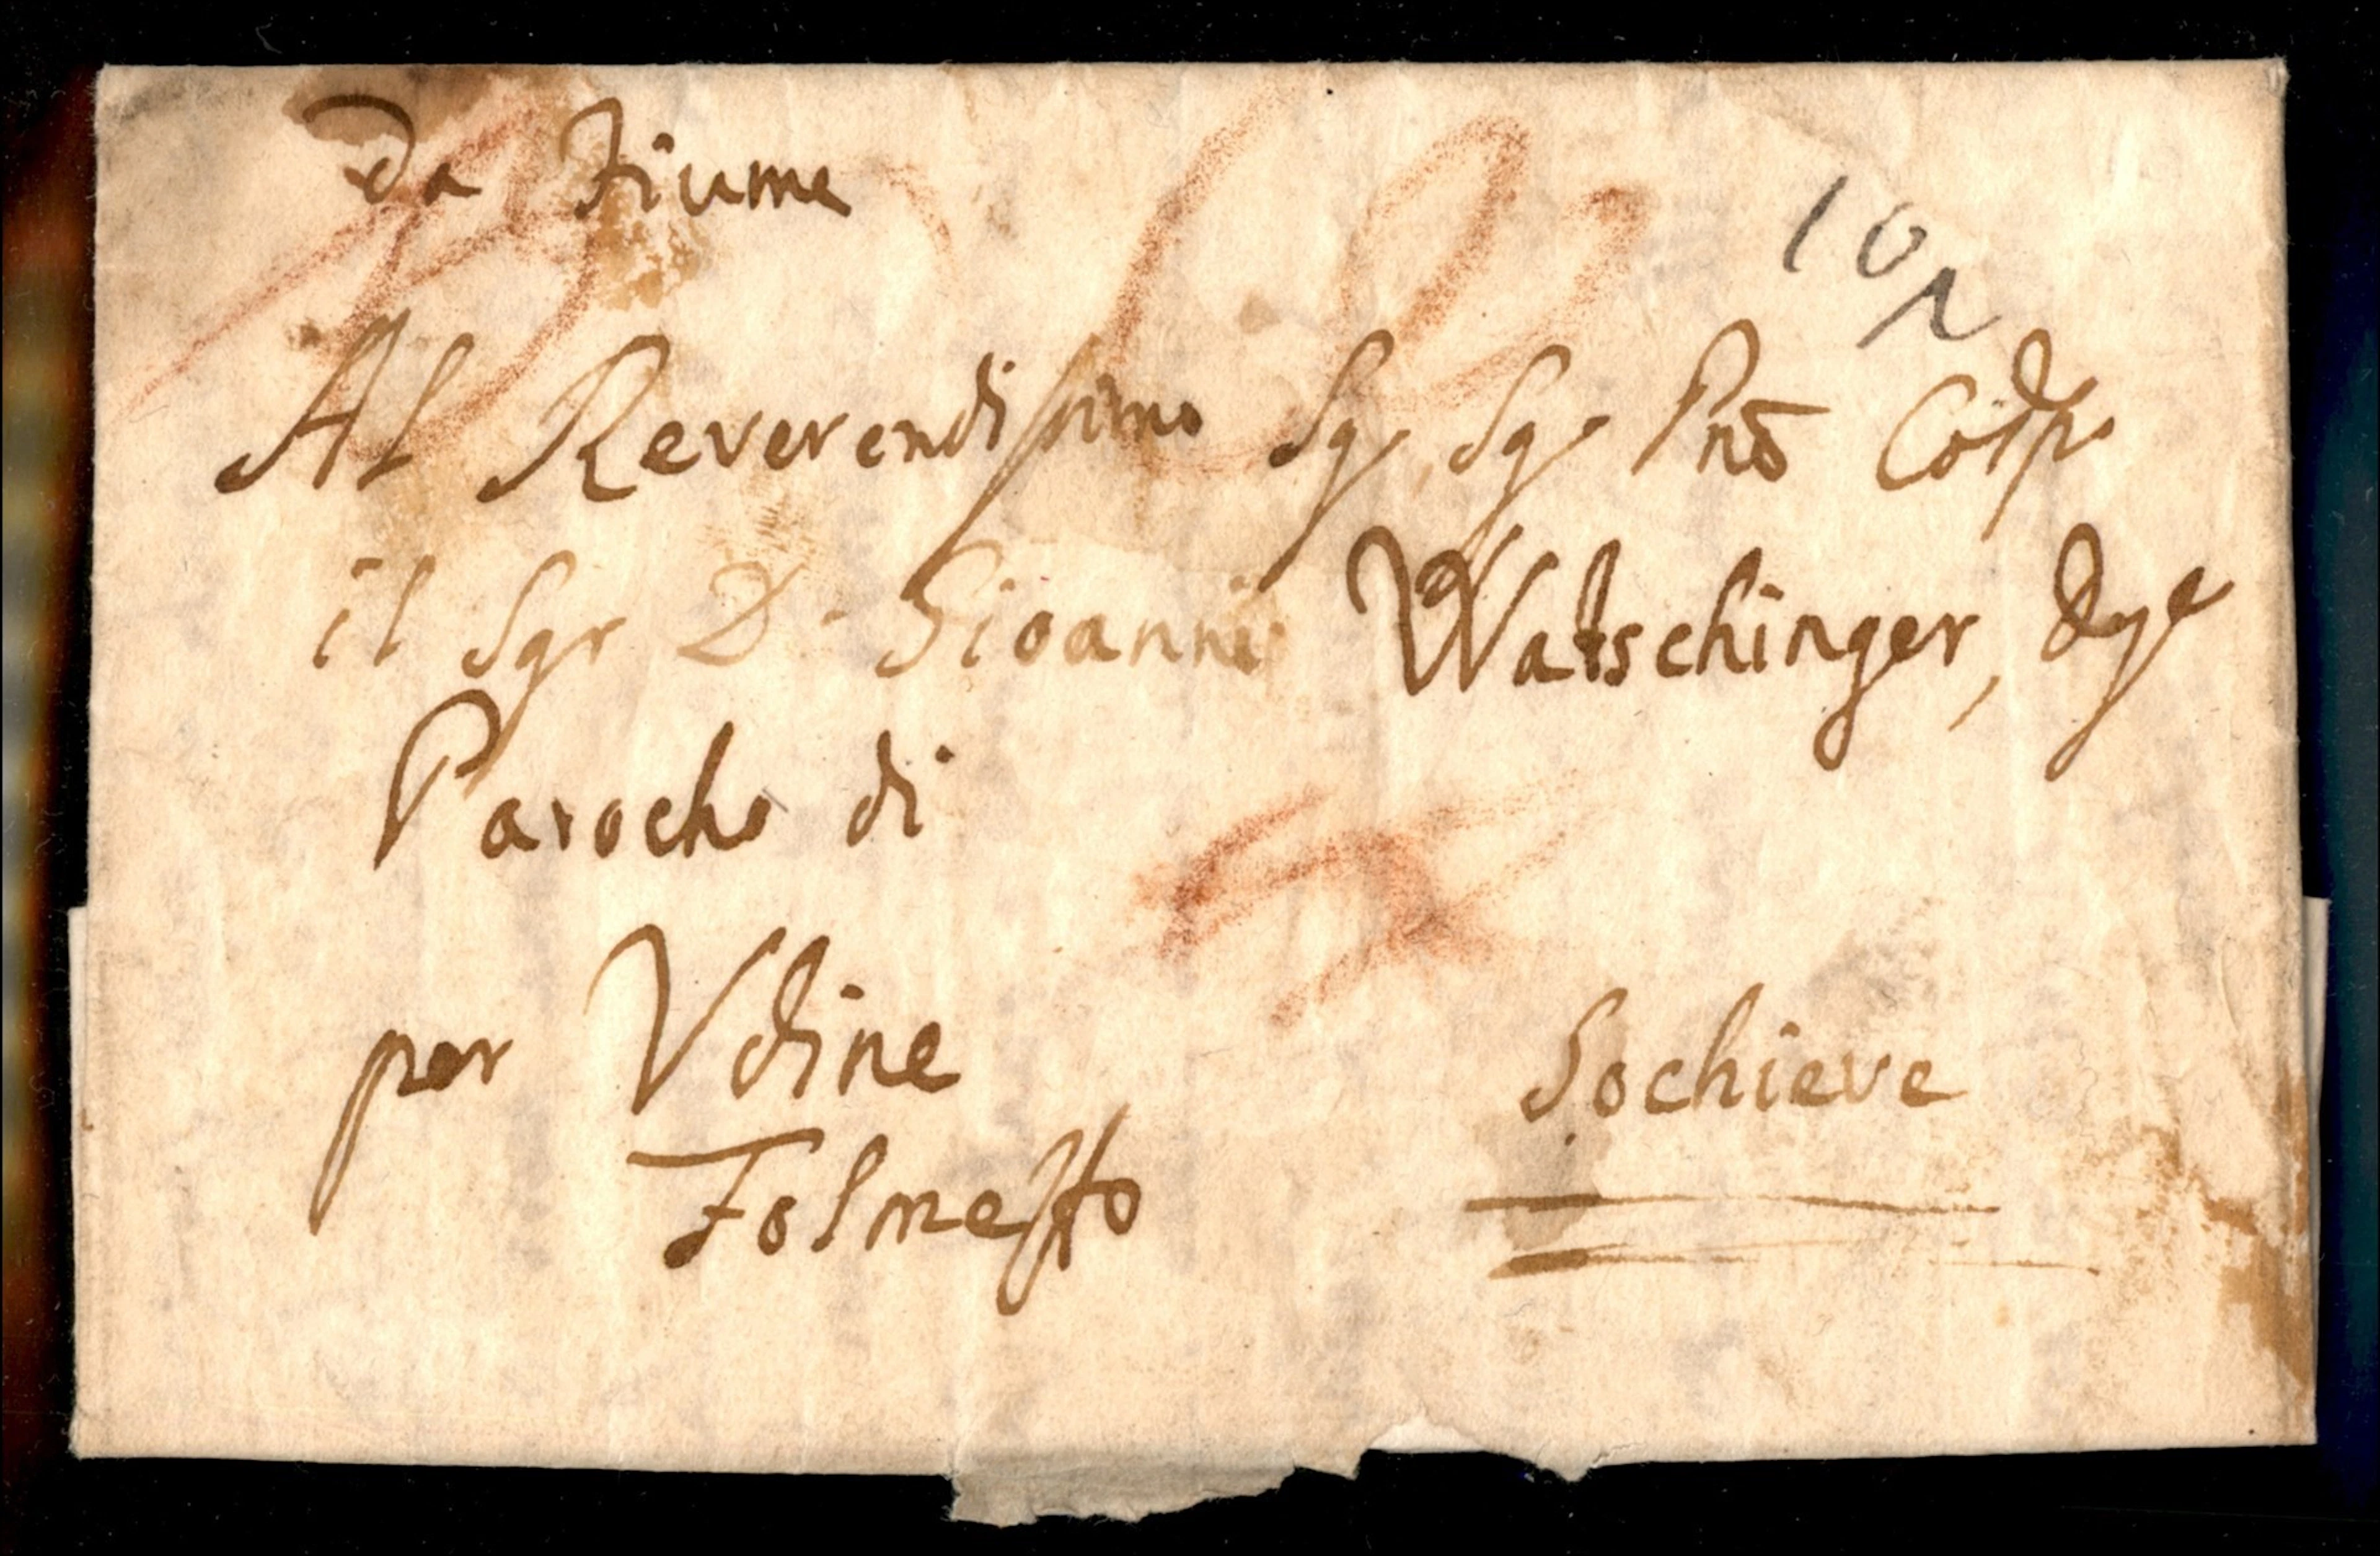 Da Fiume
Al Reverendissimo Sgr Sgr Pnō
il Sgr D. Gioanni Watschinger,
Parocho di
per Vdine
Tolmesso
Sochieve